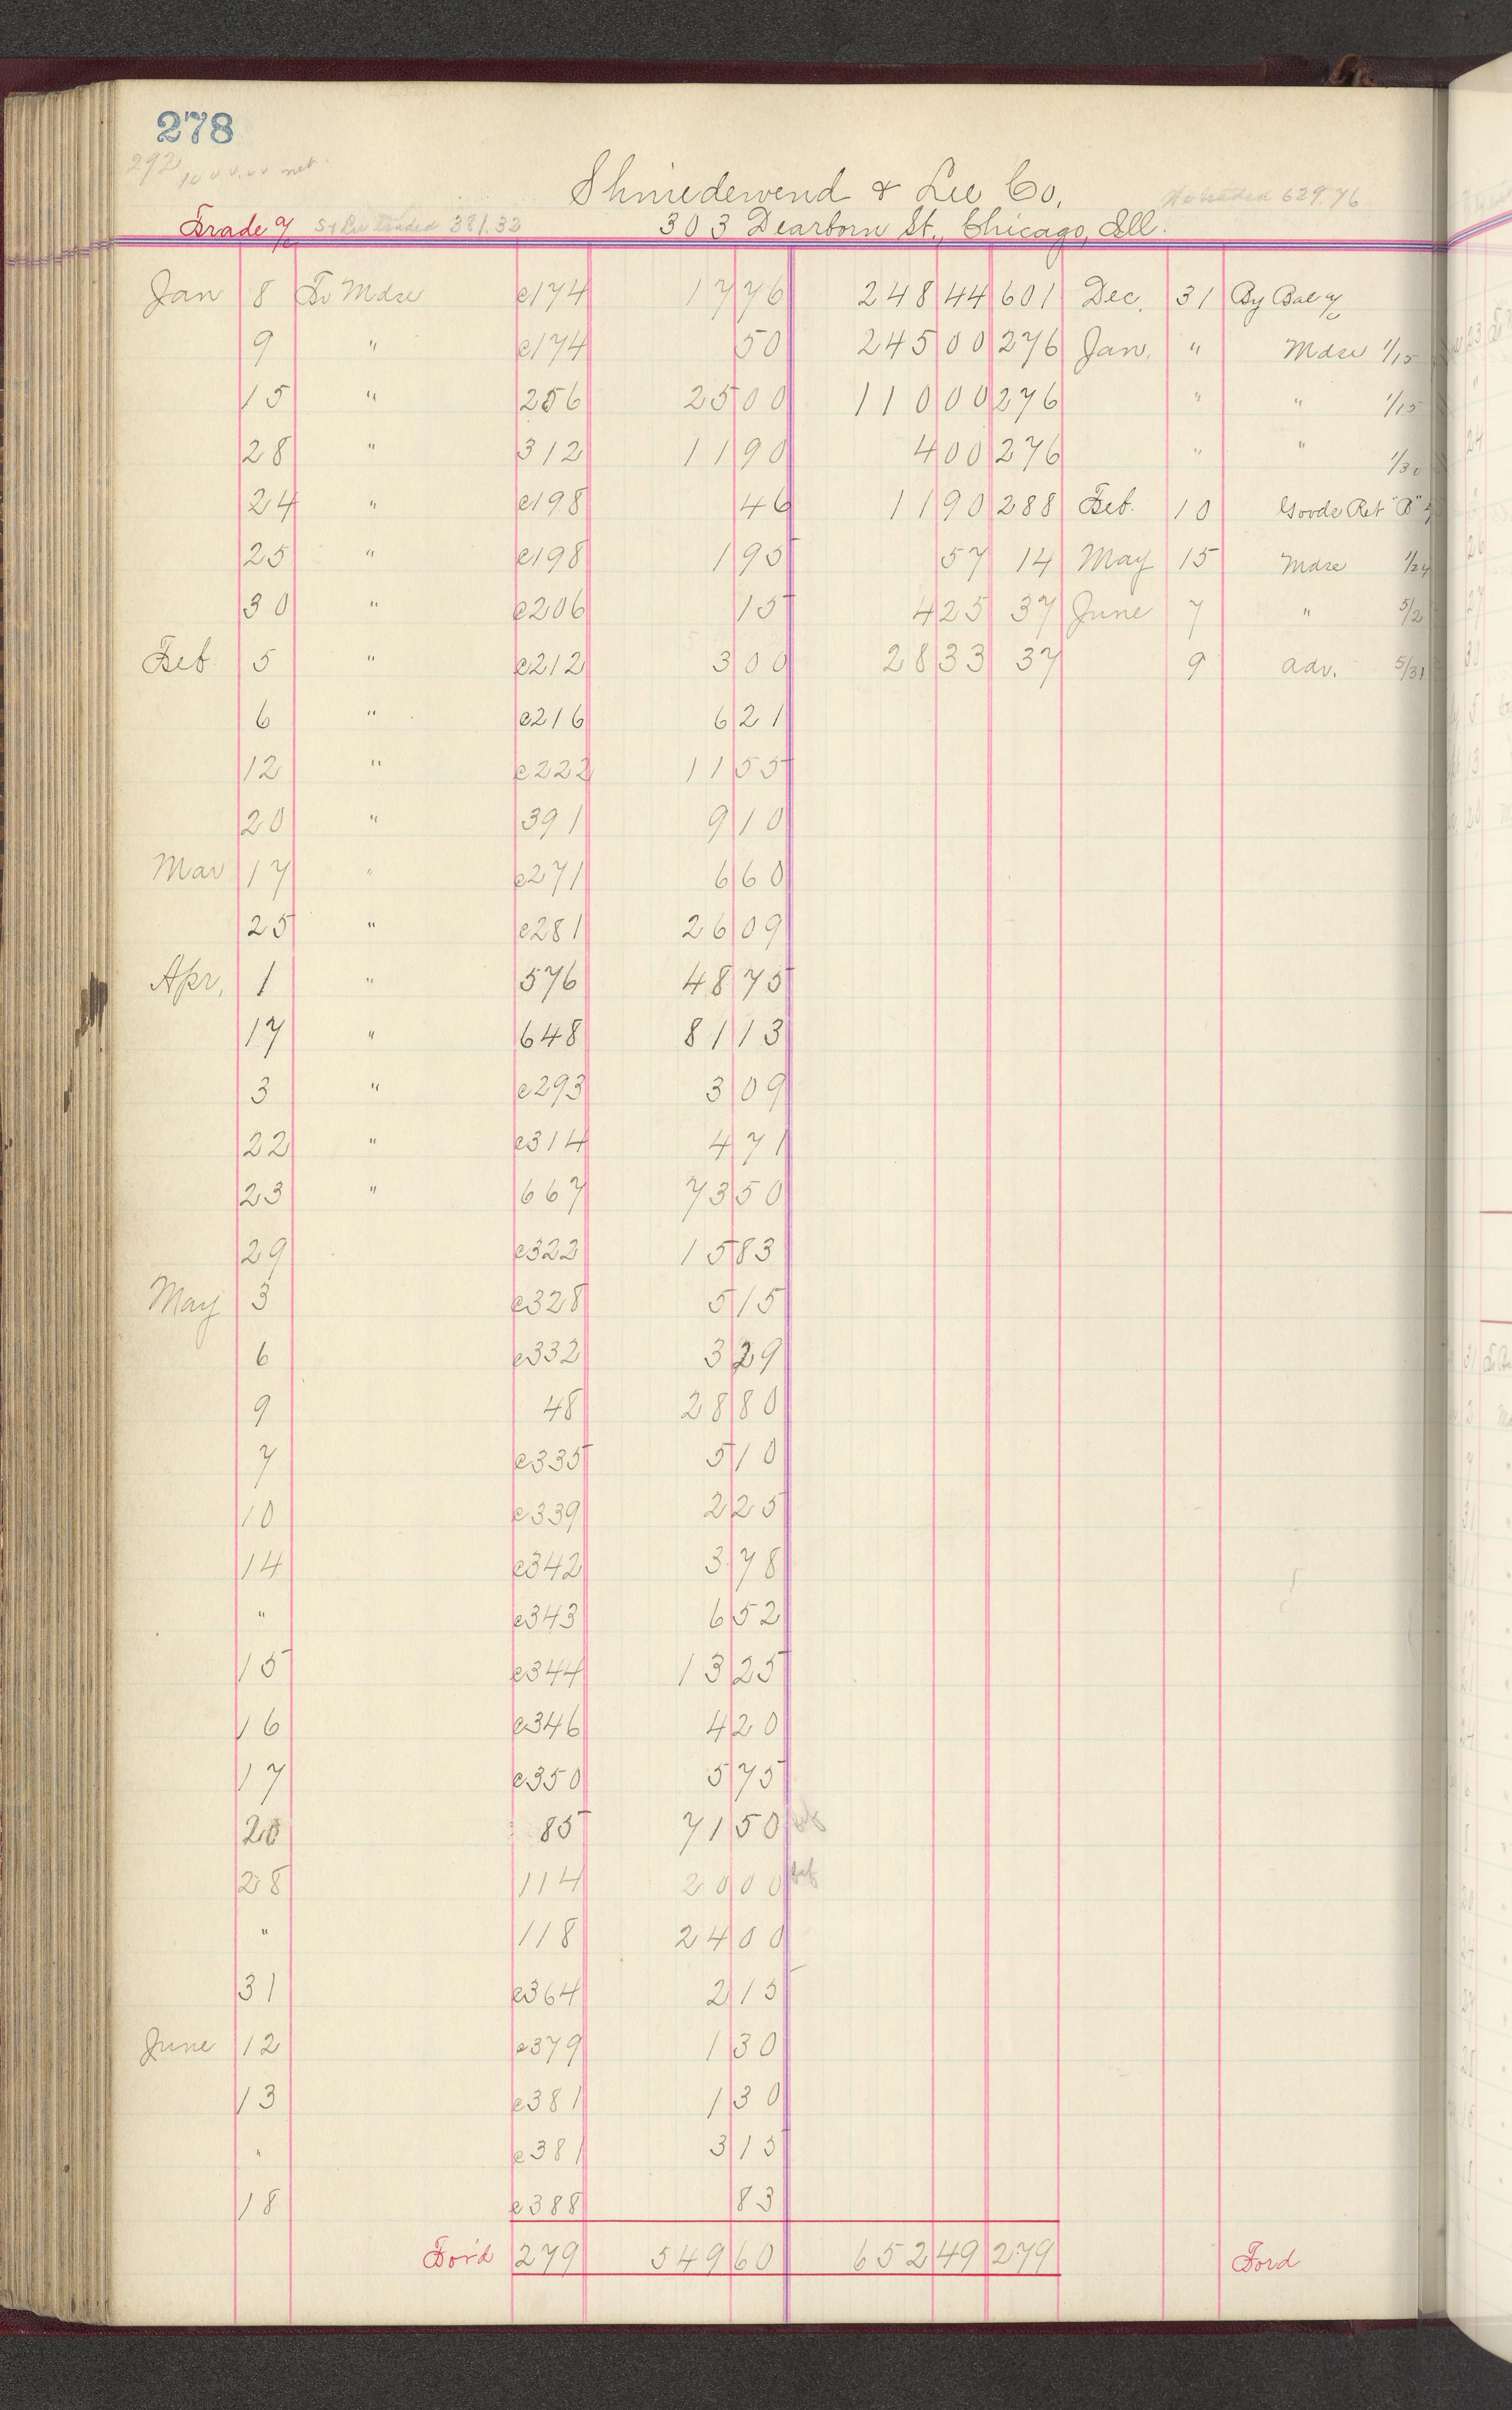 278
292 1000.00 net
Shniedewend & Lee Co. We traded 629.76
Trade a/c S & Lee traded 381.32 303 Dearborn St., Chicago, Ill.
Jan 8 To Mdse c174 17 76 248 44 601 Dec. 31 By Bal a/c
9 " c174 50 245 00 276 Jan. " Mdse 1/15
15 " 256 25 00 110 00 276 " " 1/15
28 " 312 11 90 4 00 276 " " 1/30
24 " c198 46 11 90 288 Feb. 10 Goods Ret "B"
25 " c198 1 95 57 14 May 15 Mdse 1/24
30 " c206 15 4 25 37 June 7 " 5/2
Feb 5 " c212 3 00 28 33 37 9 adv. 5/31
6 " c216 6 21
12 " c222 11 55
20 " 391 9 10
Mar 17 " c271 6 60
25 " c281 26 09
Apr. 1 " 576 48 75
17 " 648 81 13
3 " c293 3 09
22 " c314 4 71
23 " 667 73 50
29 c322 15 83
May 3 c328 5 15
6 c332 3 29
9 48 28 80
7 c335 5 10
10 c339 2 25
14 c342 3 78
" c343 6 52
15 c344 13 25
16 c346 4 20
17 c350 5 75
20 85 71 50
28 114 20 00
" 118 24 00
31 c364 2 15
June 12 c379 1 30
13 c381 1 30
" c381 3 15
18 c388 83
For'd 279 549 60 652 49 279 Ford